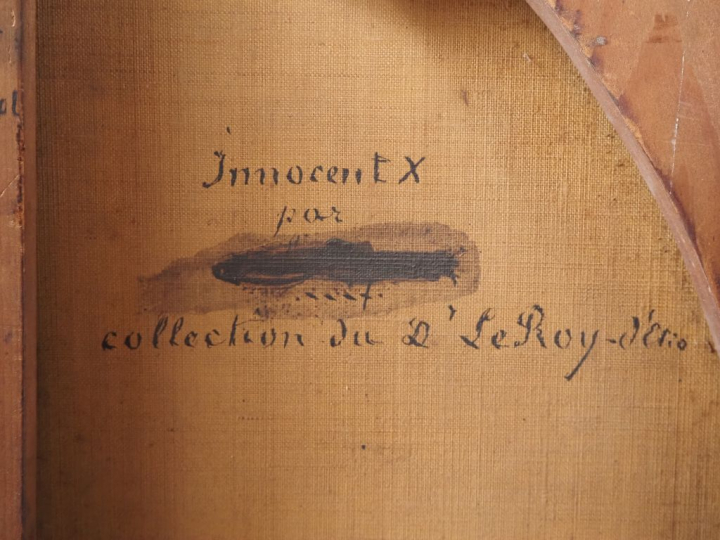 Innocent X
par
collection du Dʳ LeRoy-d'Etio